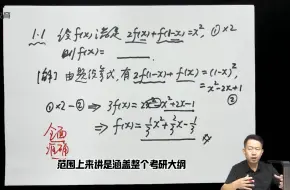 1.1 设f(x)满足 2f(x)+f(1-x)=x², ①×2
则f(x)=____
[解] 由题设等式,有 2f(1-x)+f(x)=(1-x)²,
x²-2x+1
②
①×2-② ⇒ 3f(x)=2x²-x²+2x-1
⇒ f(x)=1/3x²+2/3x-1/3
全面
准确
范围上来讲是涵盖整个考研大纲